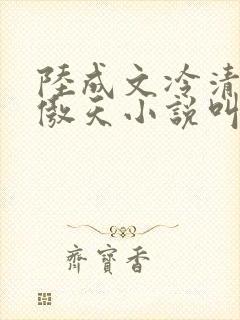 陸成文冷清
傲天小說叫
齊寶香